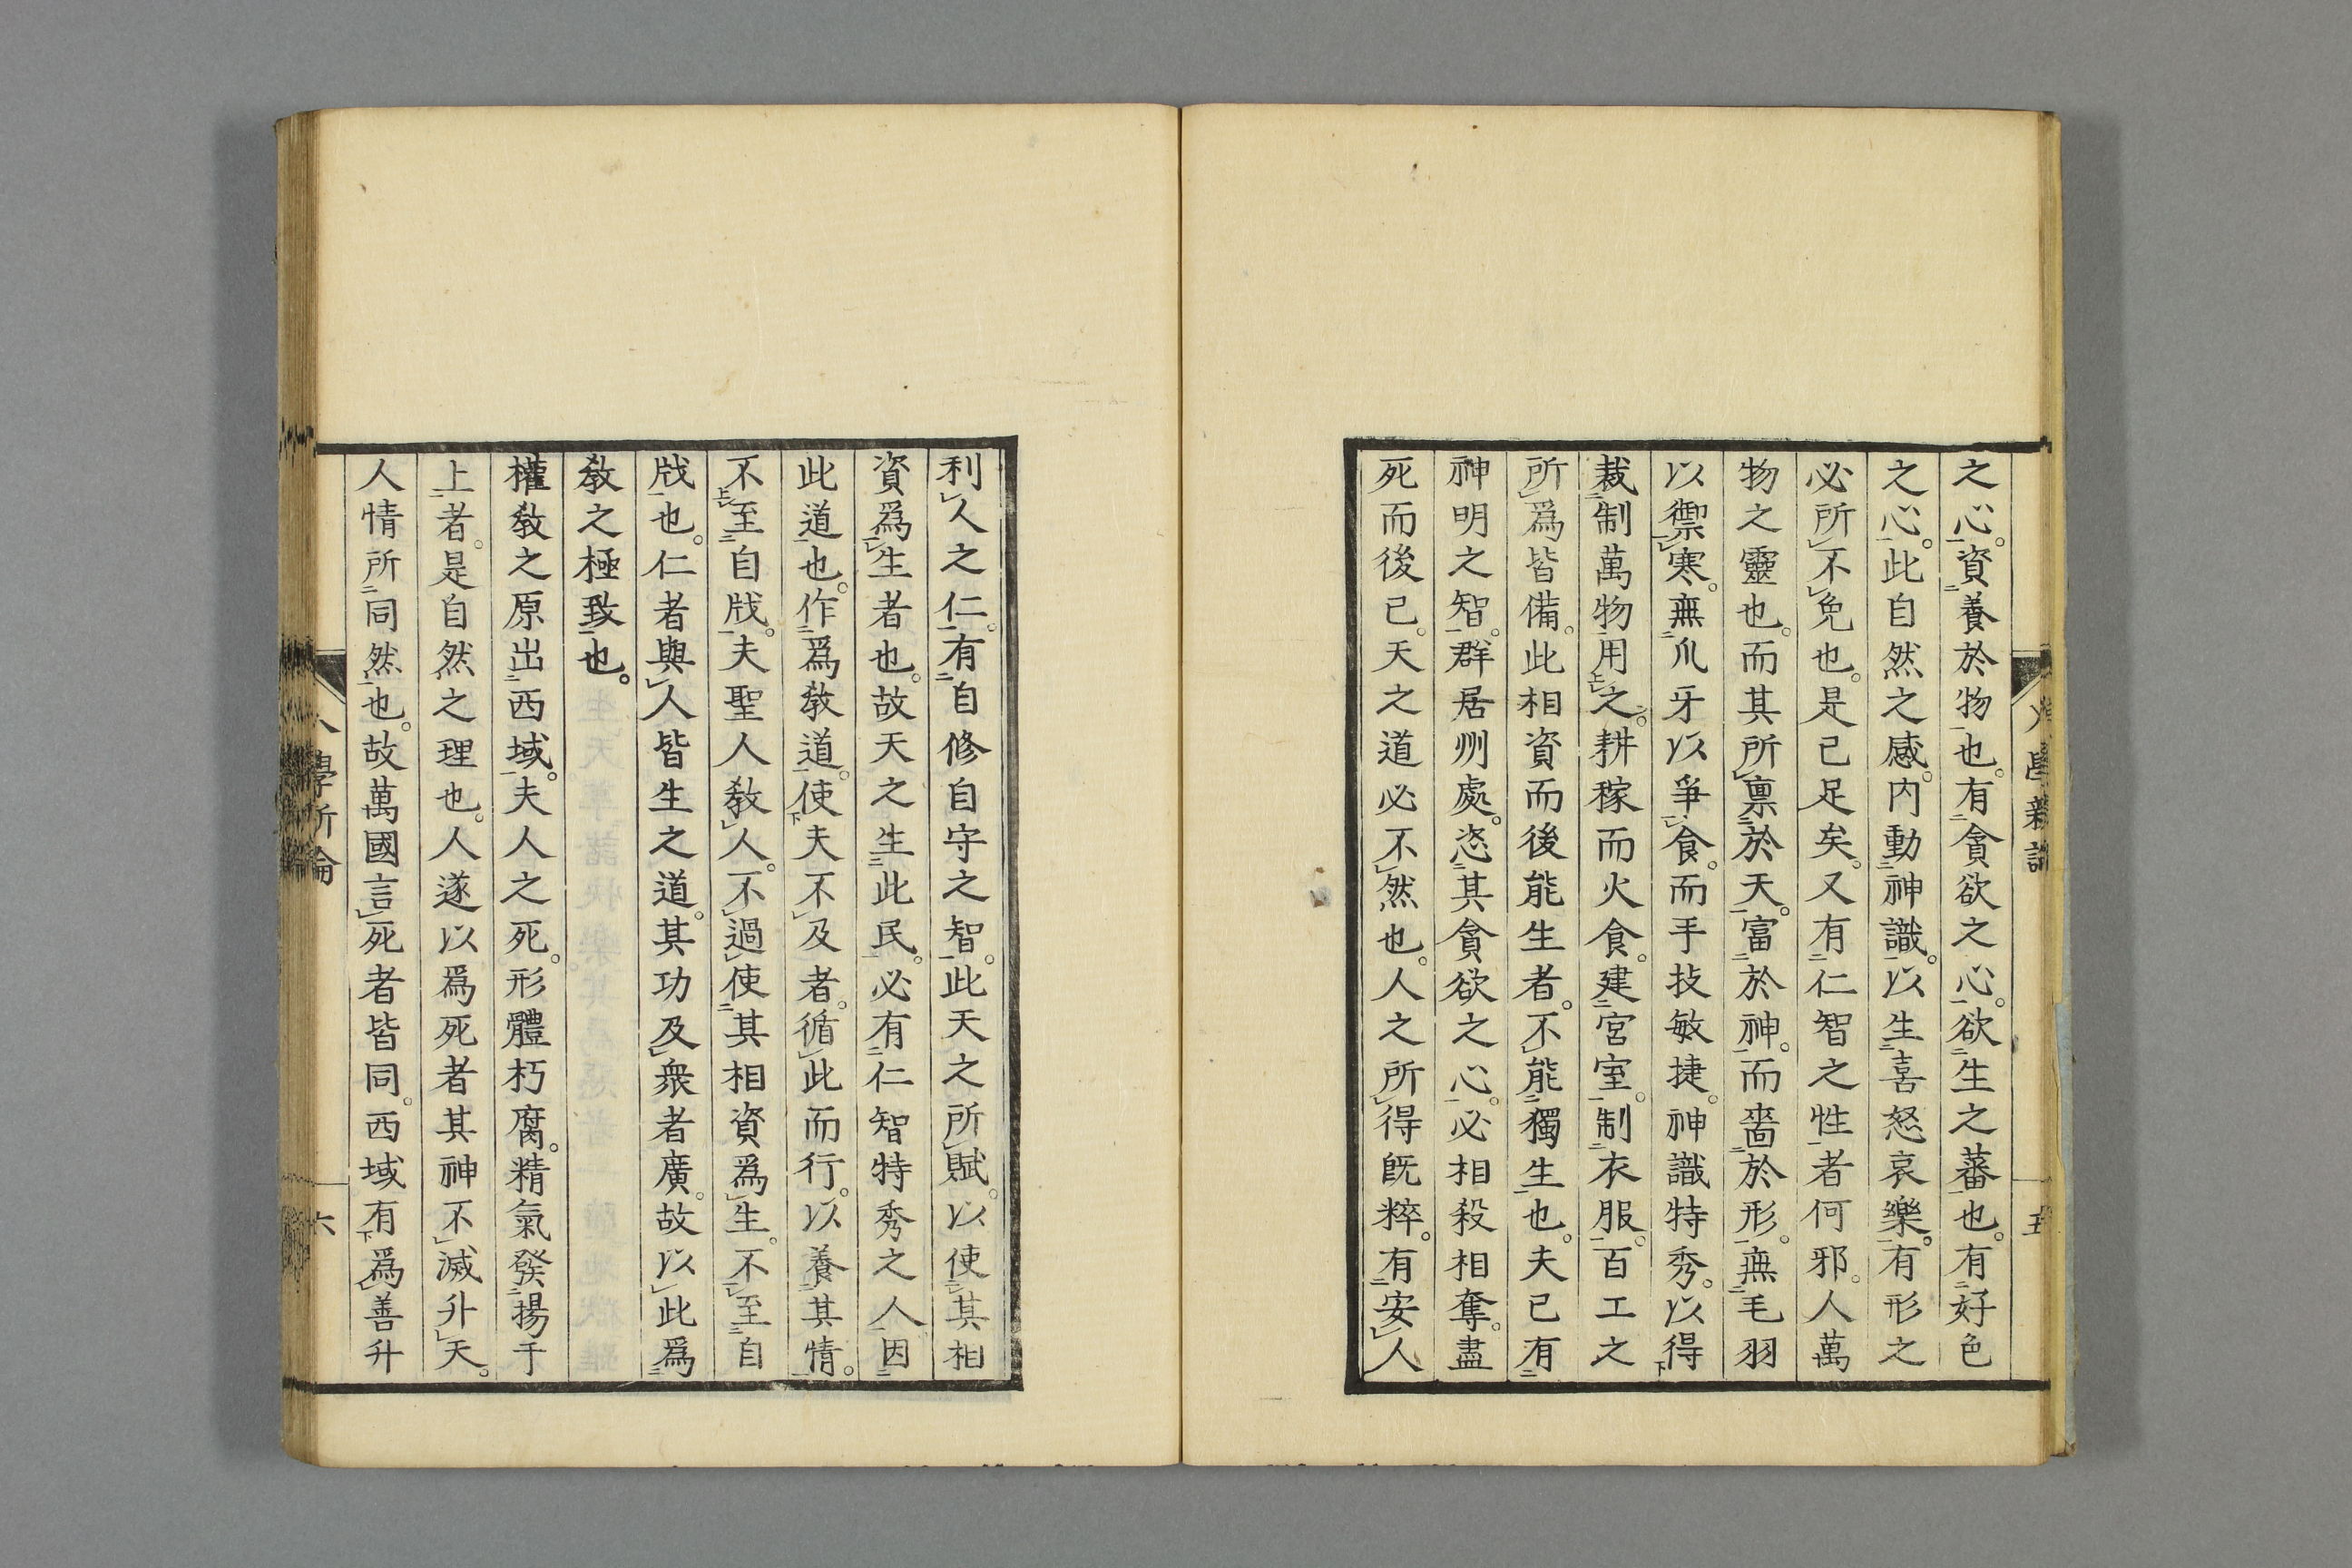 之心。資養於物也。有貪欲之心。欲生之蕃也。有好色
之心。此自然之感。内動神識。以生喜怒哀樂。有形之
必所不免也。是已足矣。又有仁智之性者何邪。人萬
物之靈也。而其所禀於天。富於神。而嗇於形。無毛羽
以禦寒。無爪牙以爭食。而手技敏捷。神識特秀。以得
裁制萬物用之。耕稼而火食。建宮室。制衣服。百工之
所爲皆備。此相資而後能生者。不能獨生也。夫已有
神明之智。群居州處。恣其貪欲之心。必相殺相奪。盡
死而後已。天之道必不然也。人之所得既粹。有安人
利人之仁。有自修自守之智。此天之所賦。以使其相
資爲生者也。故天之生此民。必有仁智特秀之人。因
此道也。作爲敎道。使夫不及者。循此而行。以養其情。
不至自戕。夫聖人敎人。不過使其相資爲生。不至自
戕也。仁者與人皆生之道。其功及衆者廣。故以此爲
敎之極致也。
權敎之原出西域。夫人之死。形體朽腐。精氣發揚于
上者。是自然之理也。人遂以爲死者其神不滅升天。
人情所同然也。故萬國言死者皆同。西域有爲善升
學所論
六